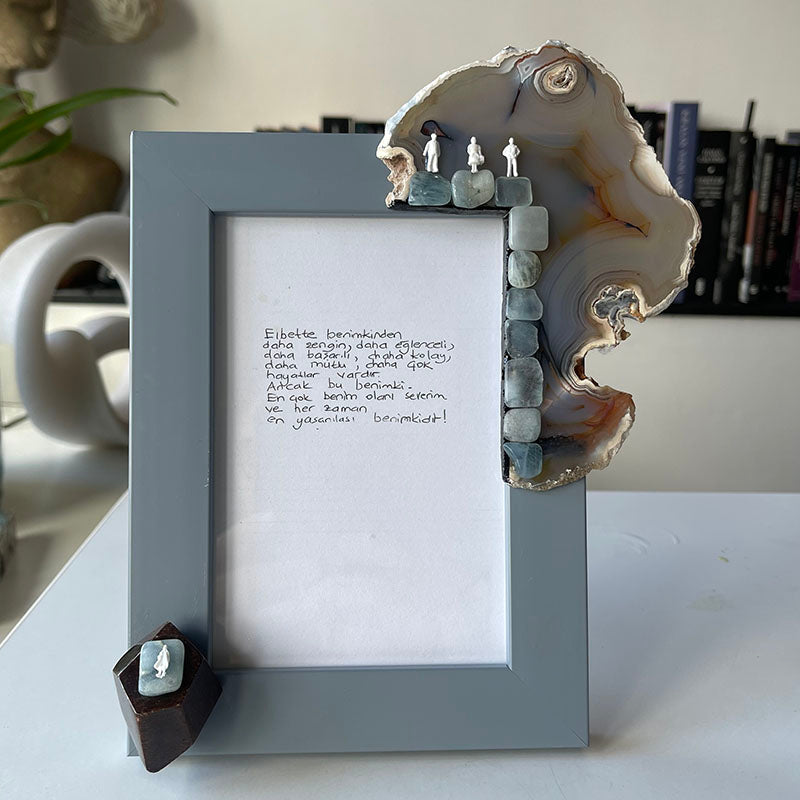 Elbette benimkinden
daha zengin, daha eğlenceli,
daha başarılı, daha kolay,
daha mutlu, daha çok
hayatlar vardır.
Ancak bu benimki.
En çok benim olanı severim
ve her zaman
en yaşanılası benimkidir!